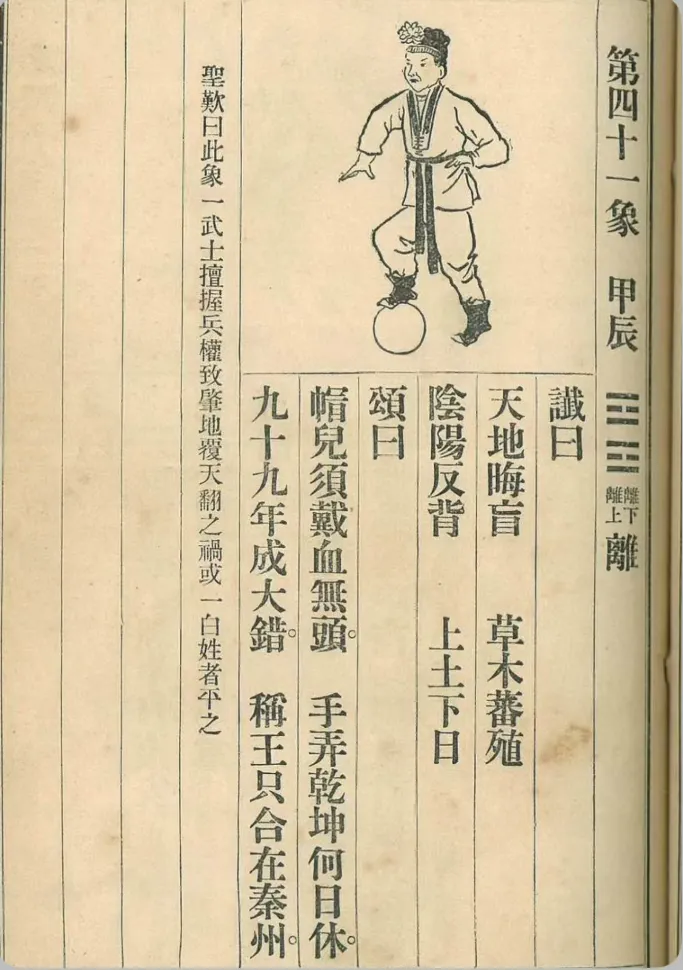 第四十一象　甲辰　離下離上　離
讖曰
天地晦盲　草木蕃殖
陰陽反背　上土下日
頌曰
帽兒須戴血無頭。　手弄乾坤何日休。
九十九年成大錯。　稱王只合在秦州。
聖歎曰此象一武士擅握兵權致肇地覆天翻之禍或一白姓者平之